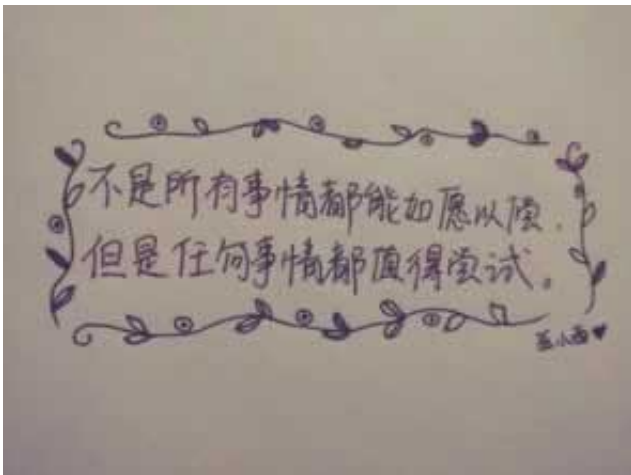 不是所有事情都能如愿以偿,
但是任何事情都值得尝试。
小西